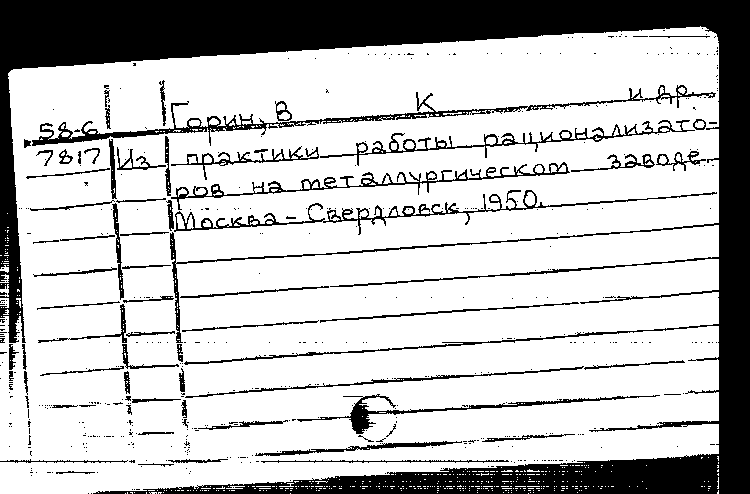 58-6 Горин, В К и др.
7817 Из практики работы рационализато-
ров на металлургическом заводе.
Москва - Свердловск, 1950.